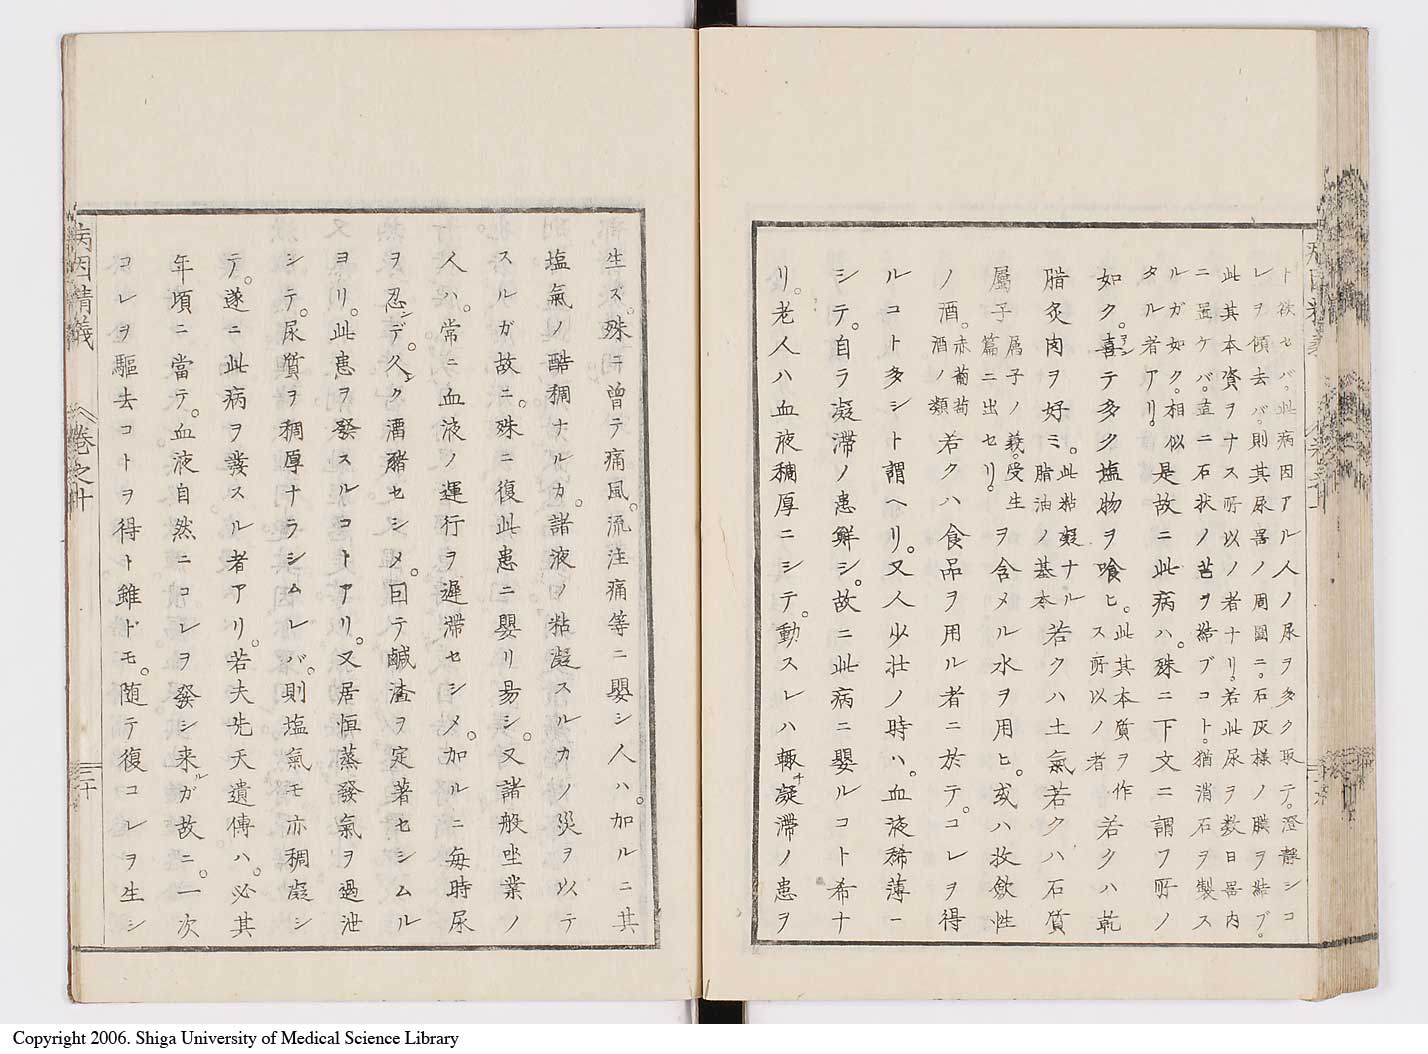 ト欲セバ。此病因アル人ノ尿ヲ多ク取テ。澄靜シコ
レヲ傾去バ。則其尿器ノ周圍ニ。石灰様ノ膜ヲ結ブ。
此其本資ヲナス所以ノ者ナリ。若此尿ヲ数日器内
ニ置ケバ。直ニ石状ノ者ヲ結ブコト。猶消石ヲ製ス
ルガ如ク。相似
タル者アリ。
是故ニ此病ハ。殊ニ下文ニ謂フ所ノ
如ク。喜テ多ク塩物ヲ喰ヒ。
此其本質ヲ作
ス所以ノ者
若クハ乾
腊炙肉ヲ好ミ。
此粘凝ナル
脂油ノ基本
若クハ土氣若クハ石質
屬子
屬子ノ義。受生
篇ニ出セリ。
ヲ含メル水ヲ用ヒ。或ハ收飲性
ノ酒。
赤葡萄
酒ノ類
若クハ食品ヲ用ル者ニ於テ。コレヲ得
ルコト多シト謂ヘリ。又人少壮ノ時ハ。血液稀薄ニ
シテ。自ラ凝滞ノ患鮮シ。故ニ此病ニ嬰ルコト希ナ
リ。老人ハ血液稠厚ニシテ。動スレハ輙チ凝滞ノ患ヲ
生ズ。殊ニ曾テ痛風。流注痛等ニ嬰シ人ハ。加ルニ其
塩氣ノ酷稠ナルカ。諸液ノ粘凝スルカノ災ヲ以テ
スルガ故ニ。殊ニ復此患ニ嬰リ易シ。又諸般坐業ノ
人ハ。常ニ血液ノ運行ヲ遅滞セシメ。加ルニ毎時尿
ヲ忍シデ。久シク潴豬セシメ。因テ鹹渣ヲ定著セシムル
ヨリ。此患ヲ發スルコトアリ。又居恒蒸發氣ヲ過泄
シテ。尿質ヲ稠厚ナラシムレバ。則塩氣モ亦稠凝シ
テ。遂ニ此病ヲ發スル者アリ。若夫先天遺傳ハ。必其
年頃ニ當テ。血液自然ニコレヲ發シ来ルガ故ニ。一次
コレヲ驅去コトヲ得ト雖ドモ。随テ復コレヲ生シ
病因精義
卷之十
三十
Copyright 2006. Shiga University of Medical Science Library